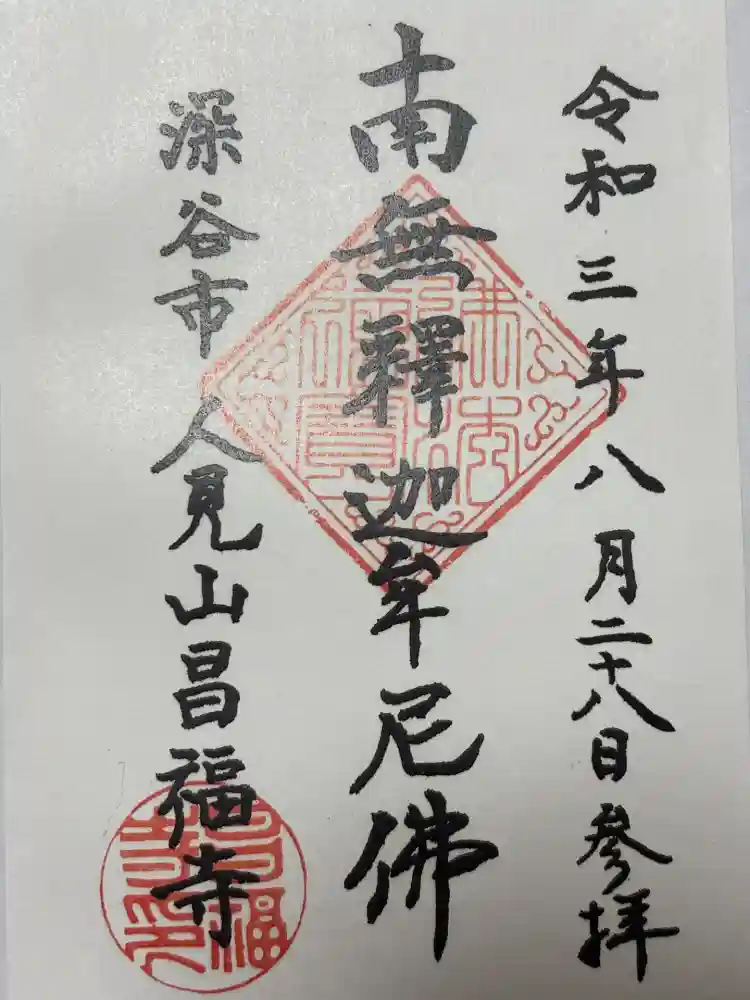 令和三年八月二十八日參拝
南無釋迦牟尼佛
深谷市人見山昌福寺
佛法僧寶
昌福寺印